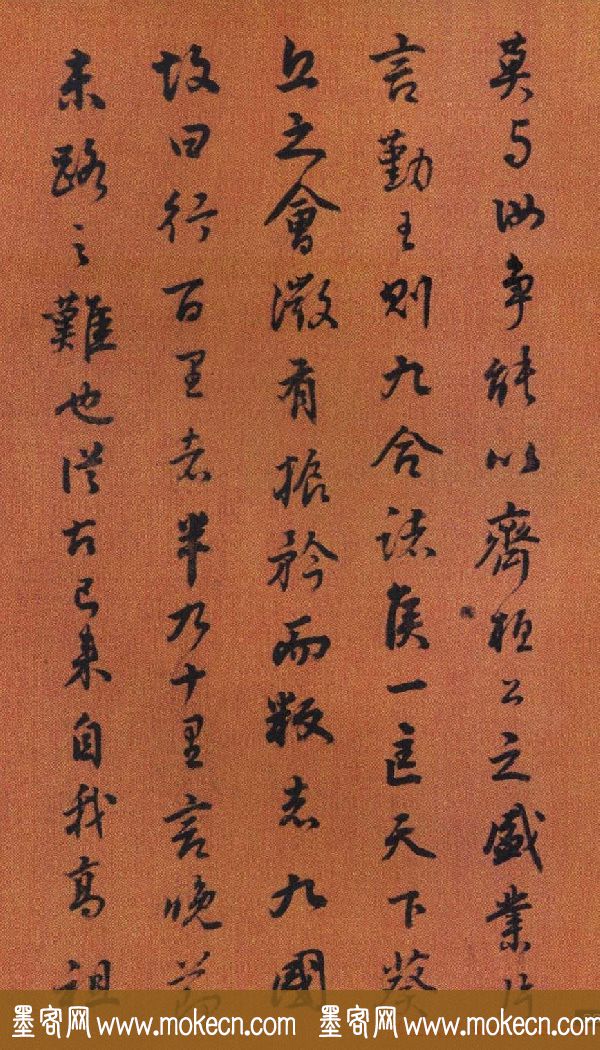 莫与汝争能以齊桓公之盛業片
言勤王則九合諸侯一匡天下葵
丘之會微有振矜而叛者九國
故曰行百里者半九十里言晚節
末路之難也從古已來自我高祖
墨客网 www.mokecn.com 墨客网 www.mokecn.com